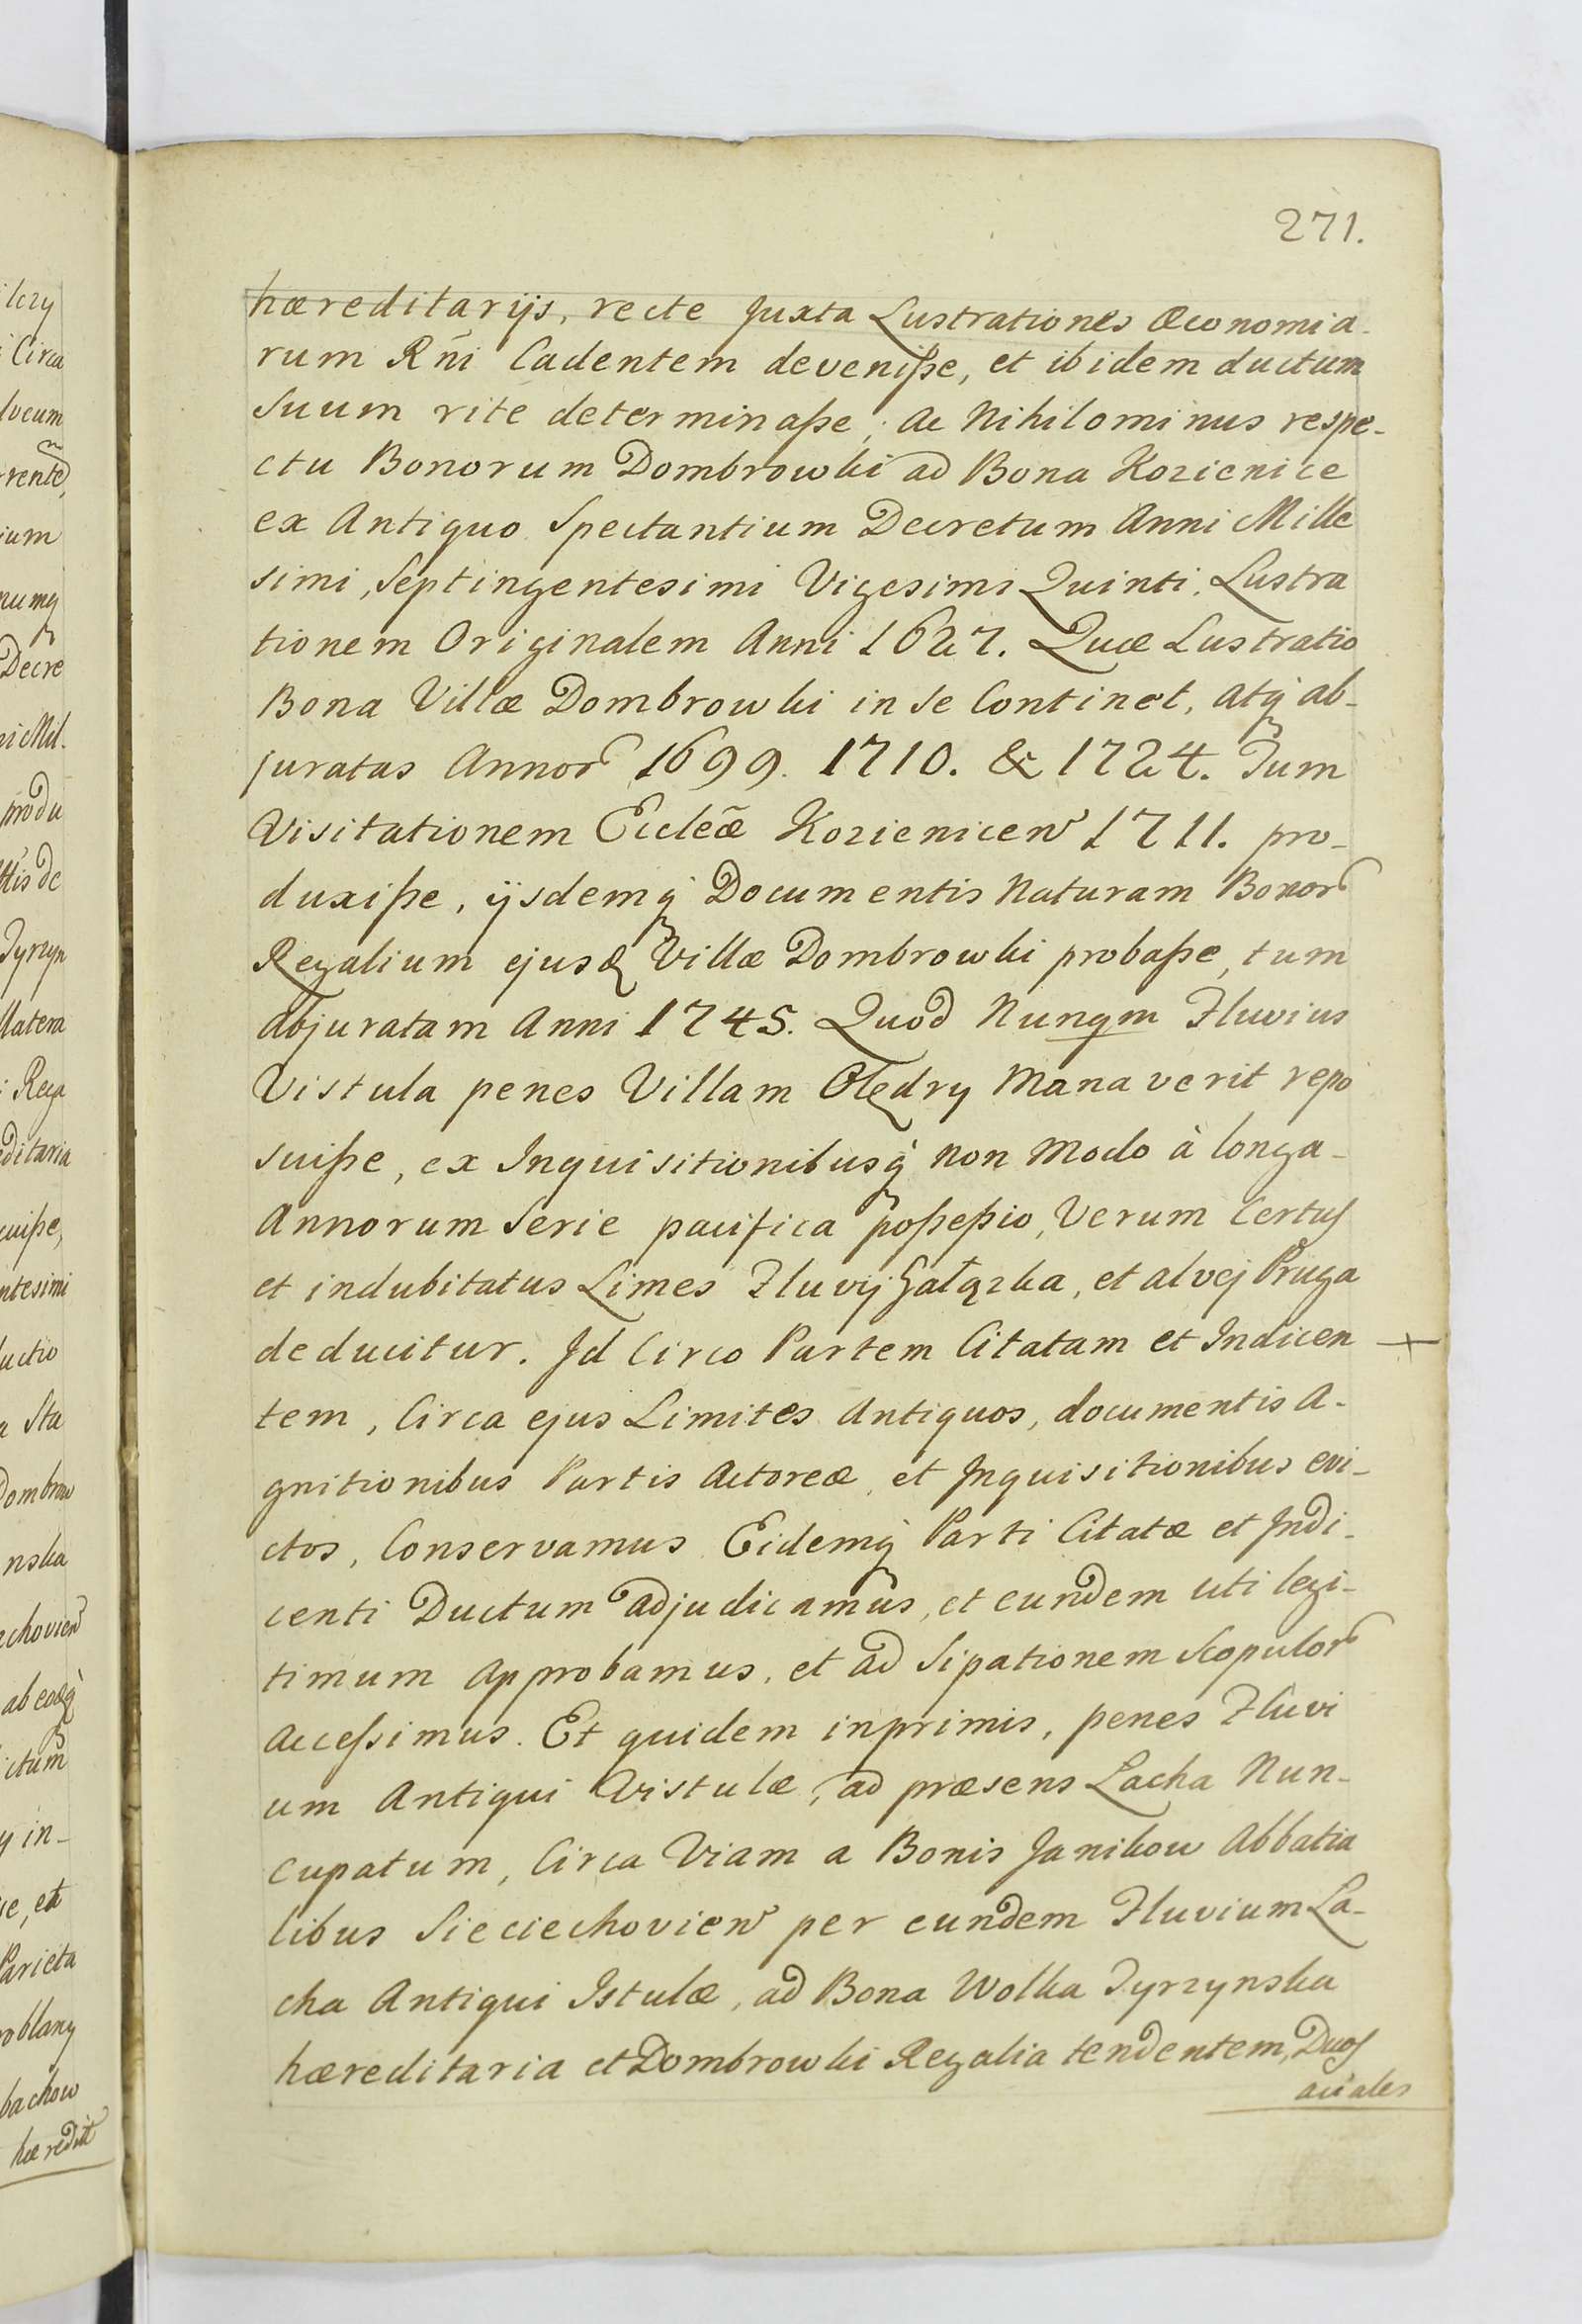 271.
hæreditarijs, recte Juxta Lustrationes Œconomia-
rum Rñi Cadentem devenisse, et ibidem ductum
Suum rite determinasse; Ac Nihilominus respe-
ctu Bonorum Dombrowki ad Bona Kozienice
ex Antiquo Spectantium Decretum Anni Mille
simi, Septingentesimi Vigesimi Quinti, Lustra
tionem Originalem Anni 1627. Quæ Lustratio
Bona Villæ Dombrowki in se Continet, atq́ ab-
juratas Annor 1699. 1710. & 1724. Tum
Visitationem Ecclẽæ Kozienicen 1711. pro-
duxisse, ijsdemq́ Documentis Naturam Bonor
Regalium ejusd Villæ Dombrowki probasse, tum
Abjuratam Anni 1745. Quod Nunqm Fluvius
Vistula penes Villam Olędry Manaverit repo
suisse, ex Inquisitionibusq́ non Modo à longa-
Annorum Serie pacifica possessio, Verum Certus
et indubitatus Limes Fluvij Gałązka, et alvej Pruga
deducitur. Id Circo Partem Citatam et Indicen +
tem, Circa ejus Limites Antiquos, documentis A-
gnitionibus Partis Actoreæ, et Inquisitionibus evi-
ctos, Conservamus Eidemq́ Parti Citatæ et Indi-
centi Ductum adjudicamus, et eundem uti legi-
timum Approbamus, et ad Sipationem Scopulor
Accessimus. Et quidem inprimis, penes Fluvi
um Antiqui Vistulæ, ad præsens Lacha Nun-
cupatum, Circa Viam a Bonis Janikow Abbatia
libus Sieciechovien per eundem Fluvium La-
cha Antiqui Istulæ, ad Bona Wolka Tyrzynska
hæreditaria et Dombrowki Regalia tendentem, Duos
aciales